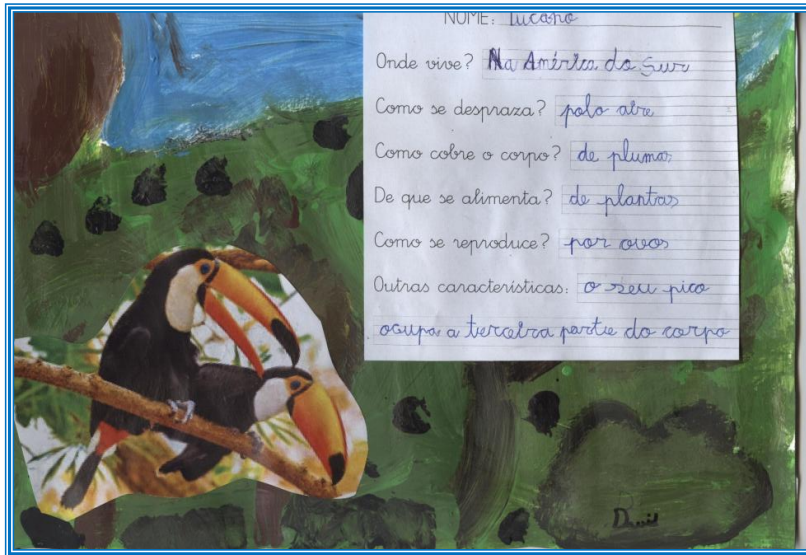 NOME: Tucano
Onde vive? Na América do Sur
Como se despraza? polo aire
Como cobre o corpo? de plumas
De que se alimenta? de plantas
Como se reproduce? por ovos
Outras características: o seu pico
ocupa a terceira parte do corpo